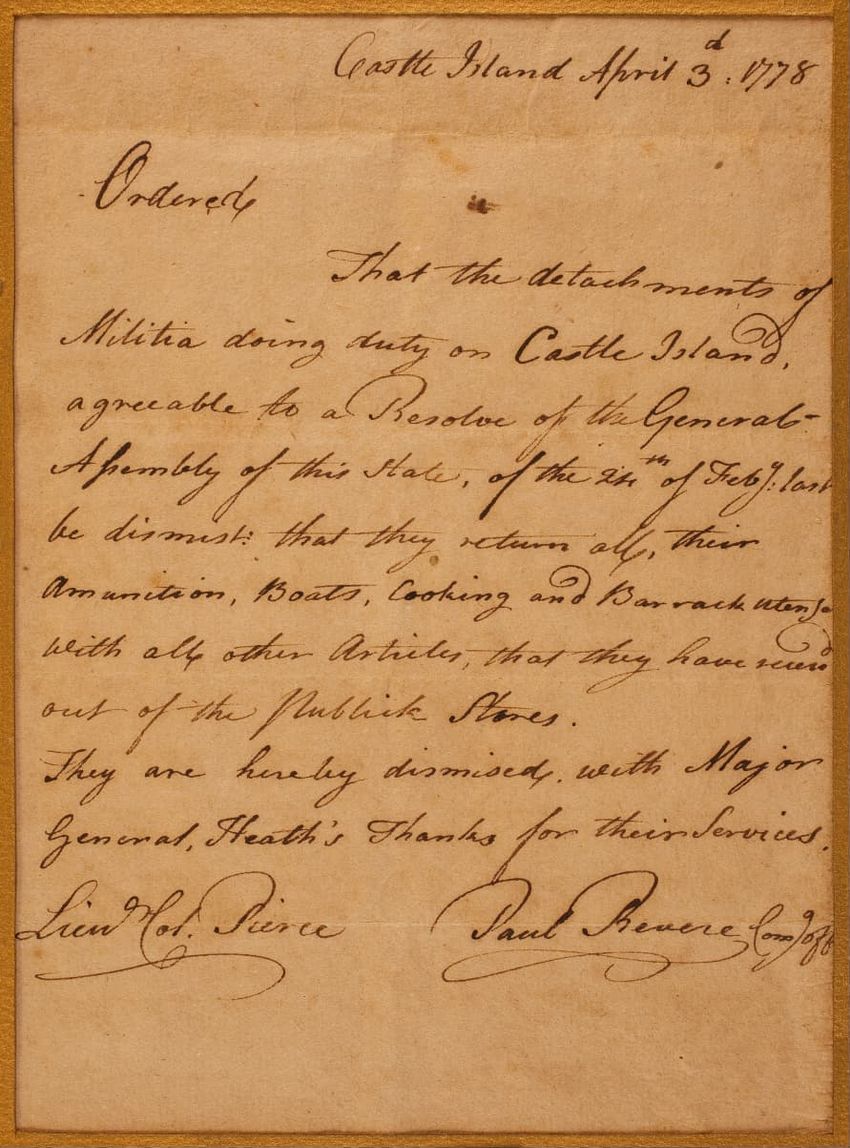 Castle Island April 3d: 1778
Ordered
That the detachments of
Militia doing duty on Castle Island,
agreeable to a Resolve of the General
Assembly of this State, of the 24th of Feby: last
be dismist: that they return all, their
Amunition, Boats, Cooking and Barrack utens
with all other Articles, that they have recievd
out of the Publick Stores.
They are hereby dismised, with Major
General, Heath's Thanks for their Services.
Lieut Col. Pierce Paul Revere Comg off